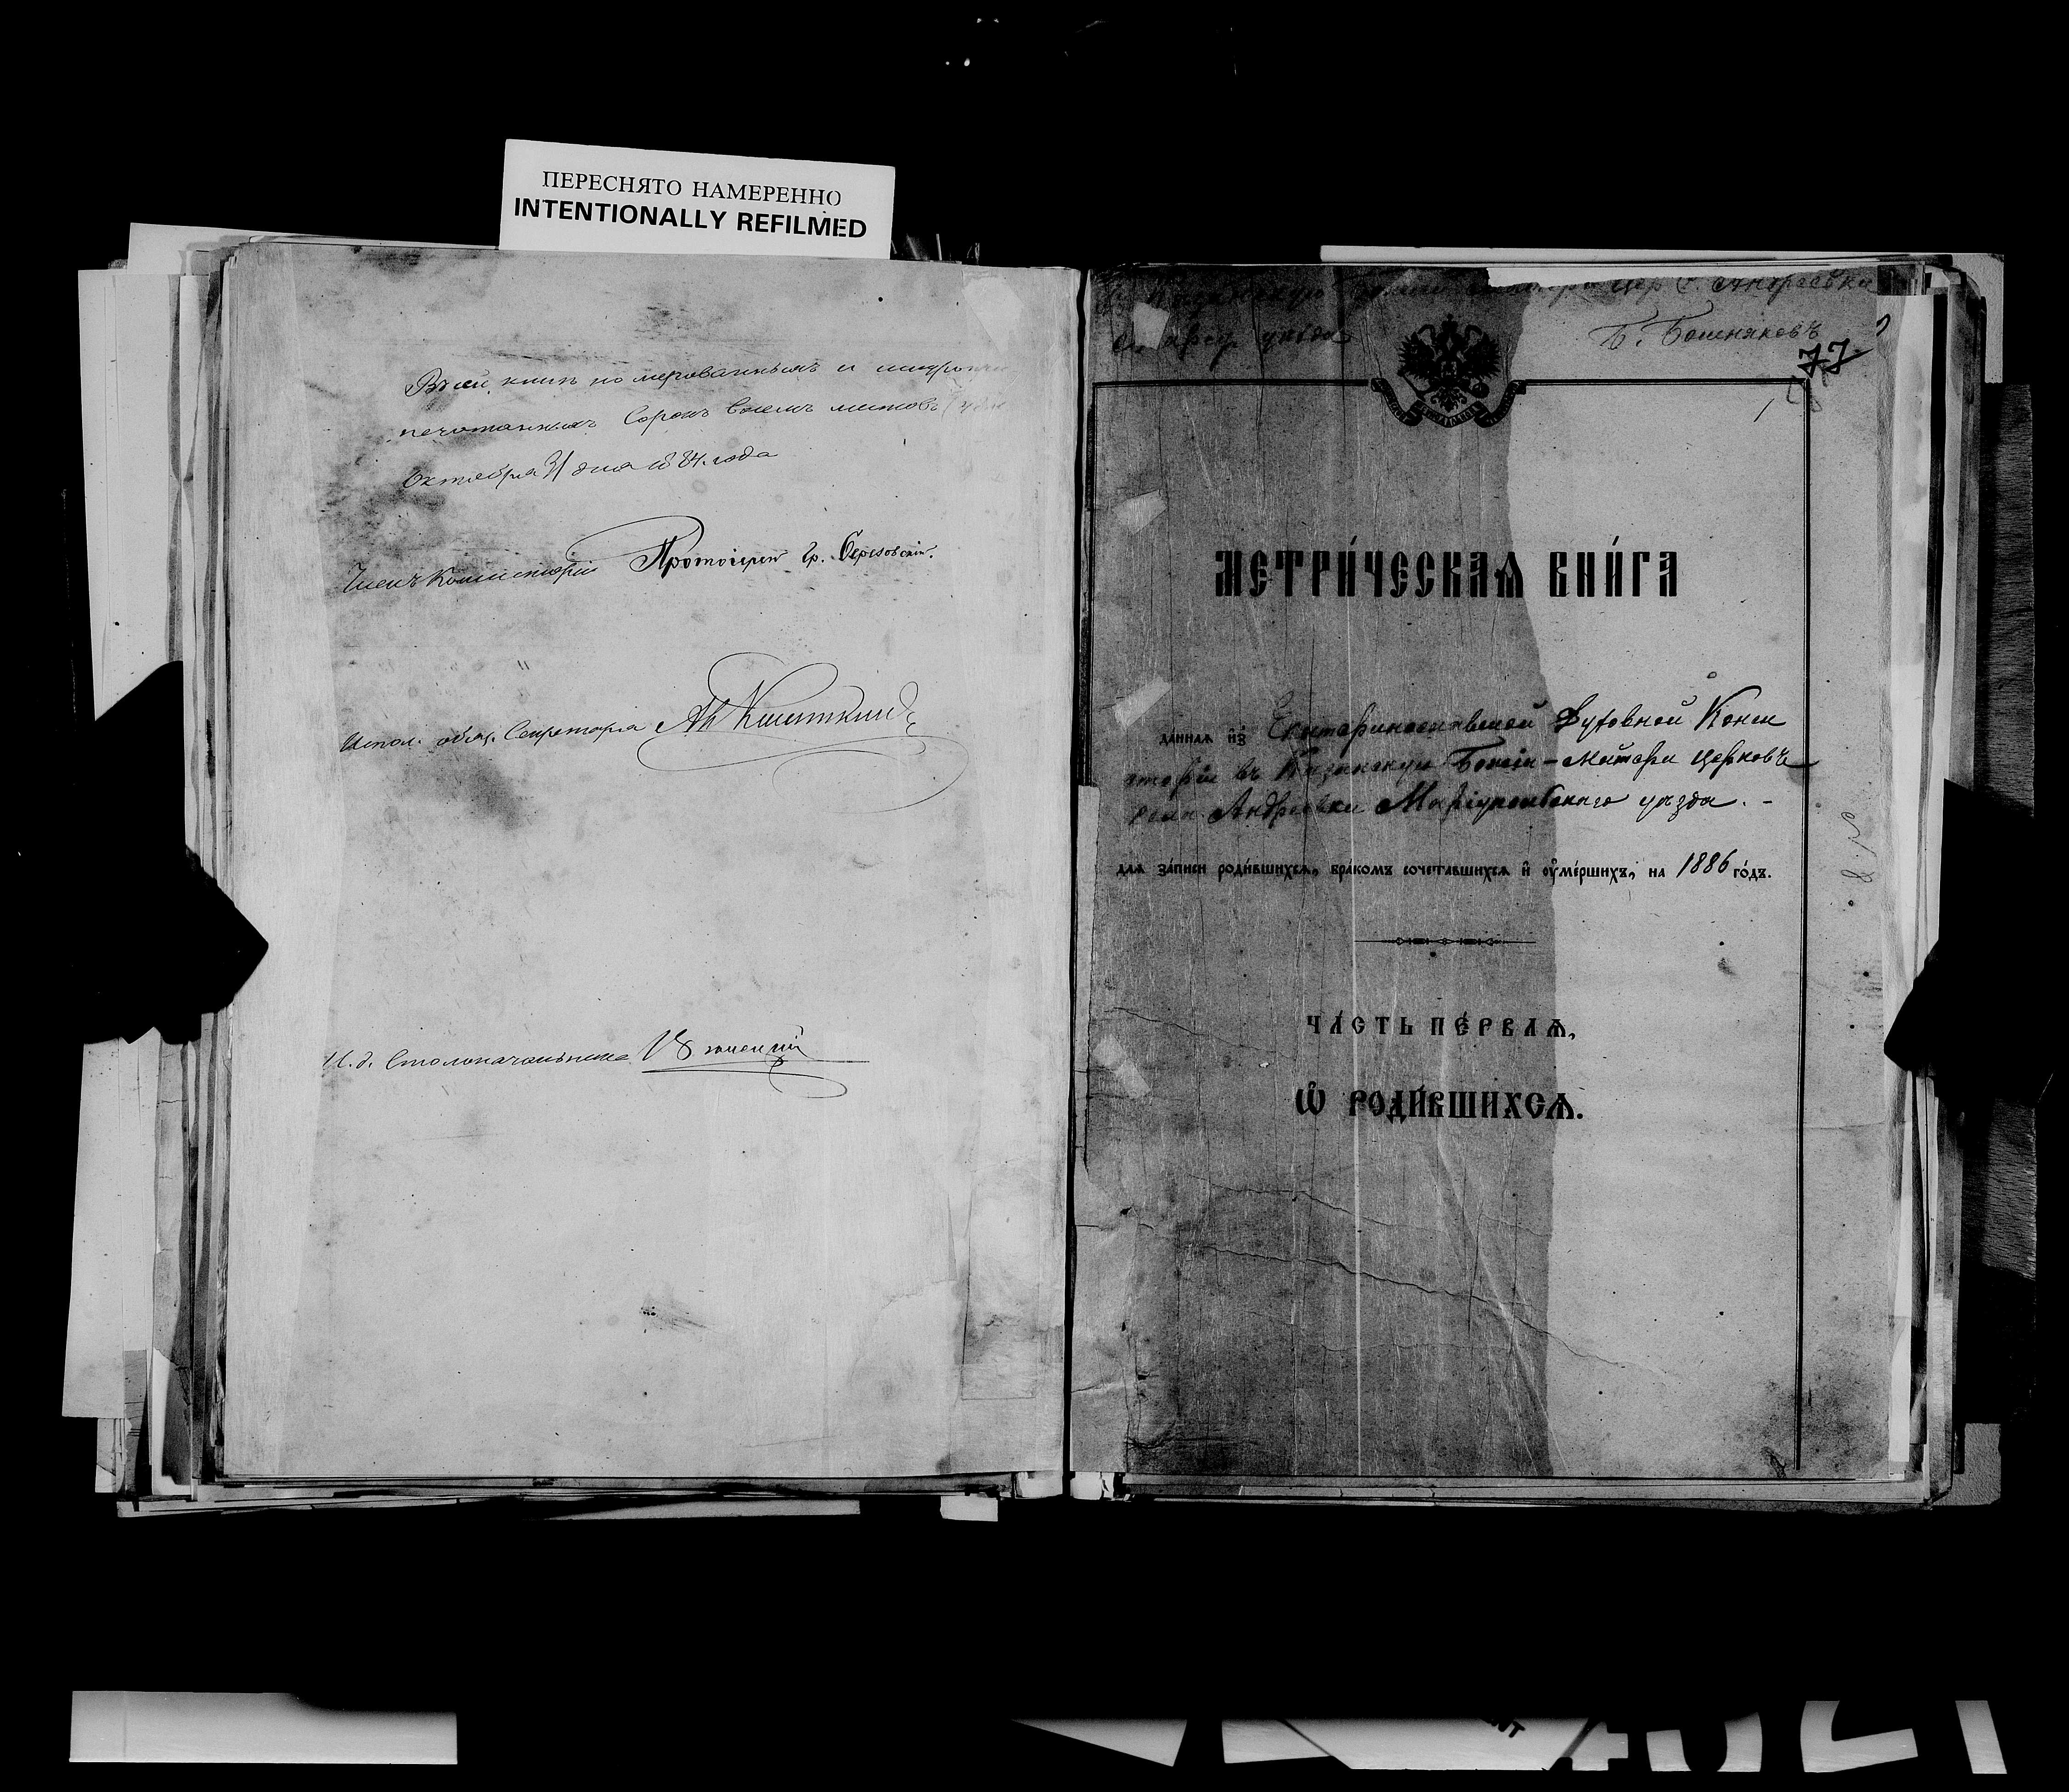 ПЕРЕСНЯТО НАМЕРЕННО
INTENTIONALLY REFILMED
В сей книге номерованныхъ и шнуро
печатанныхъ Сорокъ восемь листовъ
Октября 31 дня 1884 года
Членъ Консисторіи Протоіерей Гр. Березовскій.
Испол. обяз. Секретаря
И. д. Столоначальника
цер. с. Андреевки
уезда Б. Бошняковъ
77
МЕТРИ́ЧЕСКАѦ КНИ́ГА
даннаѧ и҆з̾ Екатеринославской Духовной Конси
сторіи въ Казанскую Божіи-Матери церковь
села Андреевки Маріупольскаго уѣзда. -
длѧ за́писи роди́вшихсѧ, бра́комъ сочета́вшихсѧ и҆ ᲂу҆ме́ршихъ, на 1886 го́дъ.
ЧА́СТЬ ПЕ́РВАѦ,
Ѡ҆ РОДИ́ВШИХСѦ.